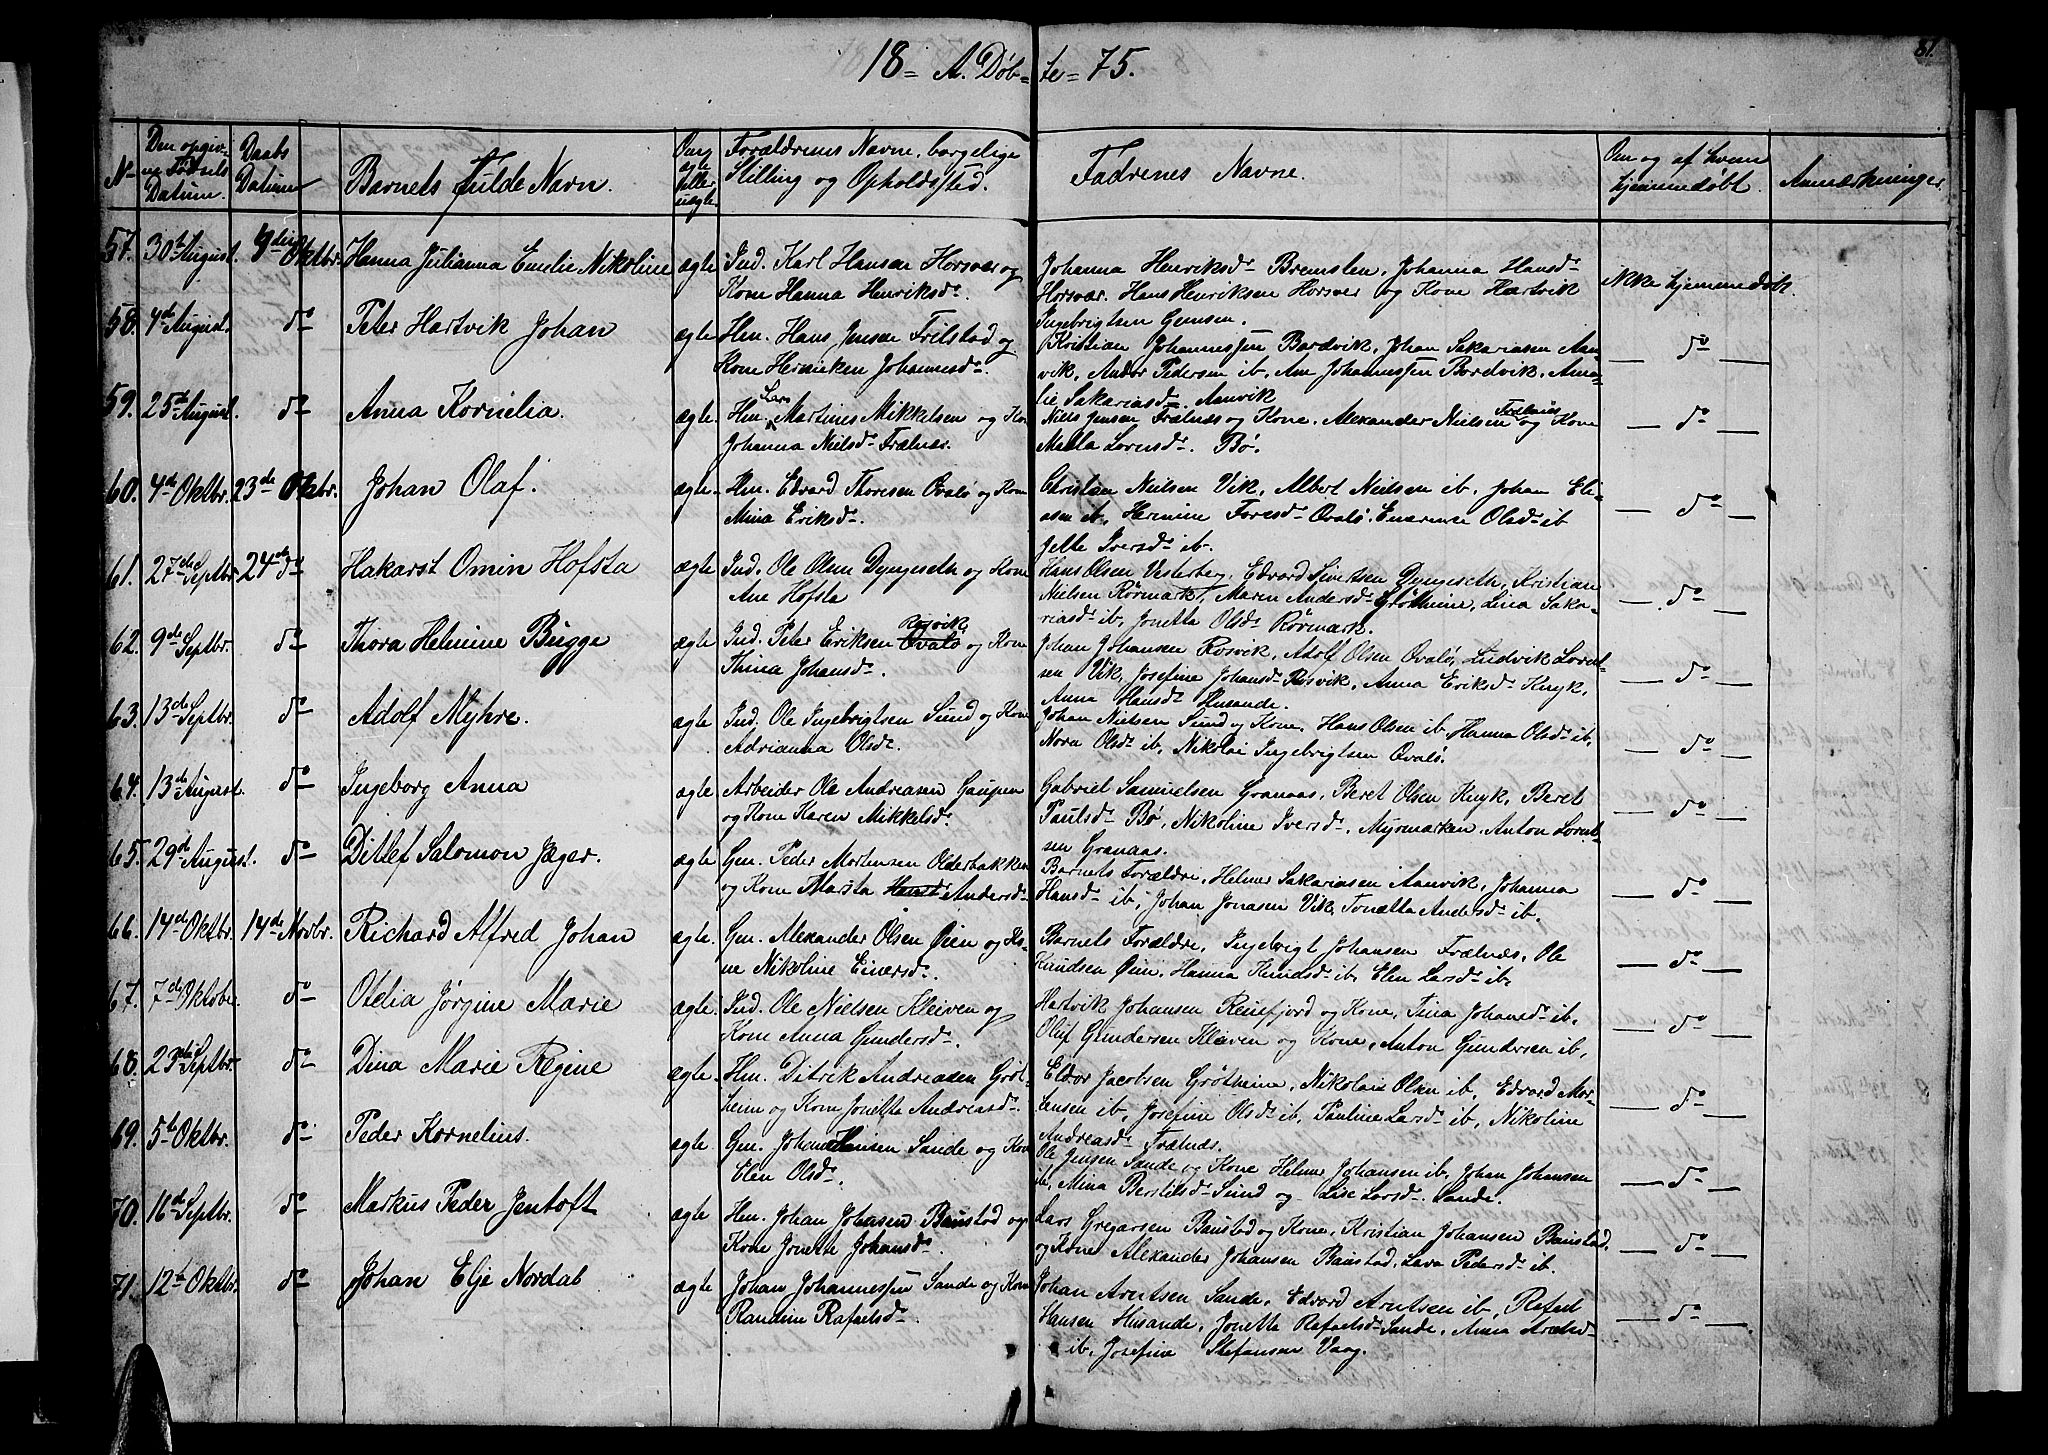 18 = A. Døb= te = 75.
81.
No
Den opgiv-
ne Fødsels
Datum.
Daabs
Datum
Barnets fulde Navn.
Om
ægte
eller
uægte.
Forældrenes Navne, borgelige
Stilling og Opholdssted.
Fadrenes Navne.
Om og af hvem
hjemmedøbt.
Anmærkninger.
57. 30te August. 9de Oktbr. Hanna Julianna Emelie Nikoline ægte Ind. Karl Hansen Horsvær og
Kone Hanna Henriksdr.
Johanna Henriksdr Bremsten, Johanna Hansdr
Horsvær. Hans Henriksen Horsvær og Kone Hartvik
Ingebrigtsen Gimsen.
ikke hjemmedøbt.
58. 4de August. do Peter Hartvik Johan ægte Hm. Hans Jensen Trilstad og
Kone Johannesdr.
Kristian Johannessen Bordvik, Johan Sakariasen Aan-
vik, Andor Pedersen ib. Ane Johannessen Bordvik, Ama-
lie Sakariasdr. Aanvik
do
59. 25de August. do Anna Kornelia. ægte. Hm. Lars Martinus Mikkelsen og Ko
Johanna Nielsdr Frælnæs.
Niels Jensen Frælnæs og Kone. Alexander Nielsen Frælnæs og Kone
Malla Lornsdr. Bø.
do
60. 4de Oktbr. 23de Oktbr. Johan Olaf. ægte. Hm. Edvard Thoresen Qvalø og Kone
Mina Eriksdr.
Christian Nielsen Vik, Albert Nielsen ib. Johan Eli-
asen ib, Hermine Toresdr Qvalø, Olsdr ib
Jelle Iversdr ib.
do
61. 27de Septbr. 24de do Hakarst Omin Hofsta ægte Ind. Ole Olsen Dyngeseth og Kone
Ane Hofsta
Hans Olsen Vesterberg, Edvard Sivertsen Dyngeseth, Kristian
Nielsen Rørmark, Maren Andersdr Grøtheim, Lina Saka-
riasdr ib, Jonetta Olsdr Rørmark.
do
62. 9de Septbr. do Thora Helmine Bugge ægte Ind. Peter Eriksen Rosvik Qvalø og Kone
Thina Johansdr.
Johan Johansen Rosvik, Adolf Olsen Qvalø, Ludvik Lorent-
sen Vik, Josefine Johansdr Rosvik, Anna Eriksdr Knyk,
Anna Hansdr Husande.
do
63. 13de Septbr. do Adolf Myhre. ægte Ind. Ole Ingebrigtsen Sund og Kone
Adrianna Olsdr.
Johan Nielsen Sund og Kone, Hans Olsen ib. Hanna Olsdr ib,
Nora Olsdr ib, Nikolai Ingebrigtsen Qvalø.
do
64. 13de August. do Ingeborg Anna ægte Arbeider Ole Andreasen Gaupen
og Kone Karen Mikkelsdr
Gabriel Samuelsen Granaas, Beret Olsen Knyk, Beret
Paulsdr Bø, Nikoline Iversdr. Myrmarken, Anton Lornt-
sen Granaas.
do
65. 29de August. do Ditlef Salomon Jæger. ægte Gm. Peder Mortensen Olderbakken
og Kone Marsta Hansd Andersdr
Barnets Forældre, Helmer Sakariasen Aanvik, Johanna
Hansdr ib, Johan Jonasen Vik, Tonætta Andersdr ib.
do
66. 14de Oktbr. 14de Novbr. Richard Alfred Johan ægte. Gm. Alexander Olsen Øien og Ko-
ne Nikoline Einersdr.
Barnets Forældre, Ingebrigt Johansen Frælnæs, Ole
Knudsen Øien, Hanna Knudsdr ib. Elen Larsdr ib.
do
67. 7de Oktobr. do Otelia Jørgine Marie ægte. Ind. Ole Nielsen Kleiven og
Kone Anna Gundersdr.
Hartvik Johansen Reinfjord og Kone, Tina Johansdr ib.
Oluf Gundersen Kleiven og Kone, Anton Gundersen ib,
do
68. 23de Septbr. do Dina Marie Regine ægte. Hm. Ditrik Andreasen Grøt-
heim og Kone Jonetta Andreasdr.
Eldor Jacobsen Grøtheim, Nikolai Olsen ib, Edvard Mor-
tensen ib, Josefine Olsdr ib, Pauline Larsdr ib, Nikoline
Andreasdr Frælnæs.
do
69. 5te Oktbr. do. Peder Kornelius. ægte Gm. Johan Hansen Sande og Kone
Elen Olsdr.
Ole Jensen Sande og Kone Helmer Johansen ib, Johan Johansen
ib, Mina Berntsdr Sund og Lise Larsdr. Sande.
do
70. 16de Septbr. do Markus Peder Jentoft ægte Hm. Johan Johansen Baustad og
Kone Jonetta Johansdr.
Lars Gregersen Baustad og Kone, Kristian Johansen Baustad.
og Kone Alexander Johansen Baustad, Lava Pedersdr ib.
do
71. 12te Oktbr. do Johan Elje Nordal ægte Johan Johannessen Sande og Kone
Randine Rafaelsdr.
Johan Arntsen Sande, Edvard Arntsen ib, Rafael
Hansen Husande, Jonetta Rafaelsdr Sande, Anna
ib, Josefine Stefansen Vaag.
do